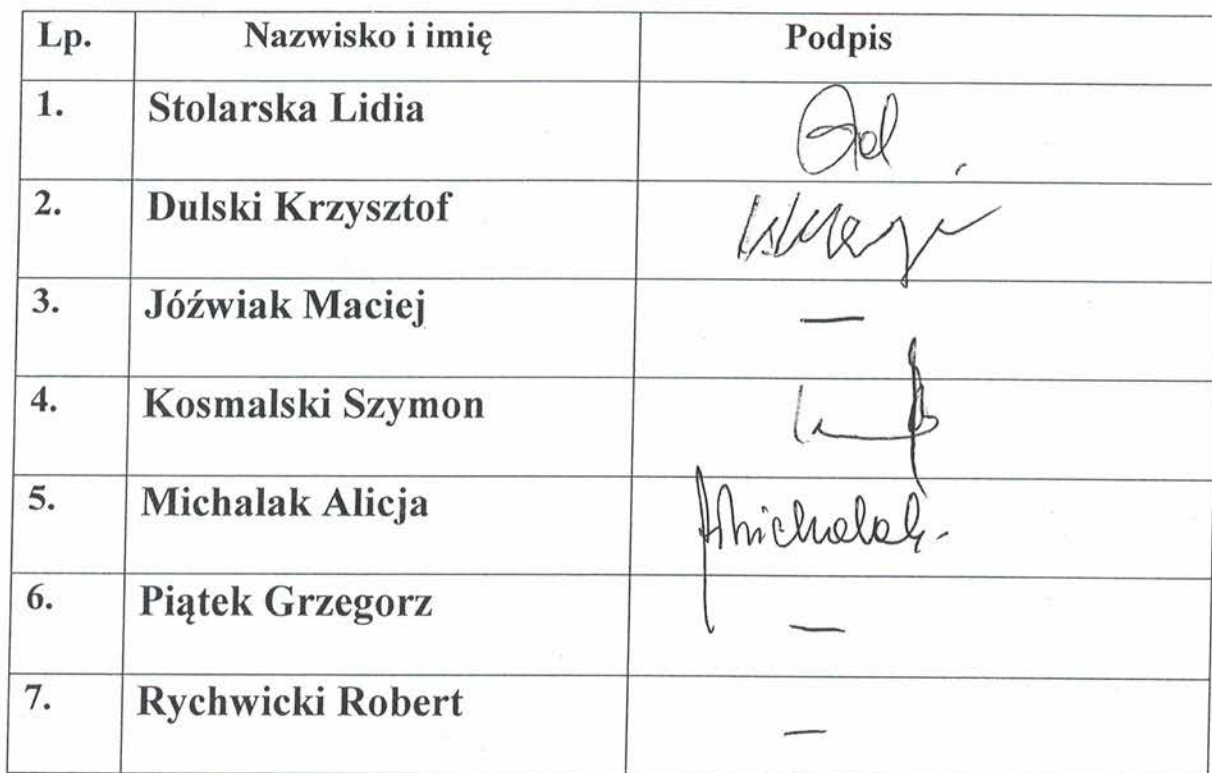 Lp. Nazwisko i imię Podpis
1. Stolarska Lidia
2. Dulski Krzysztof
3. Jóźwiak Maciej —
4. Kosmalski Szymon
5. Michalak Alicja AMichalak.
6. Piątek Grzegorz —
7. Rychwicki Robert —